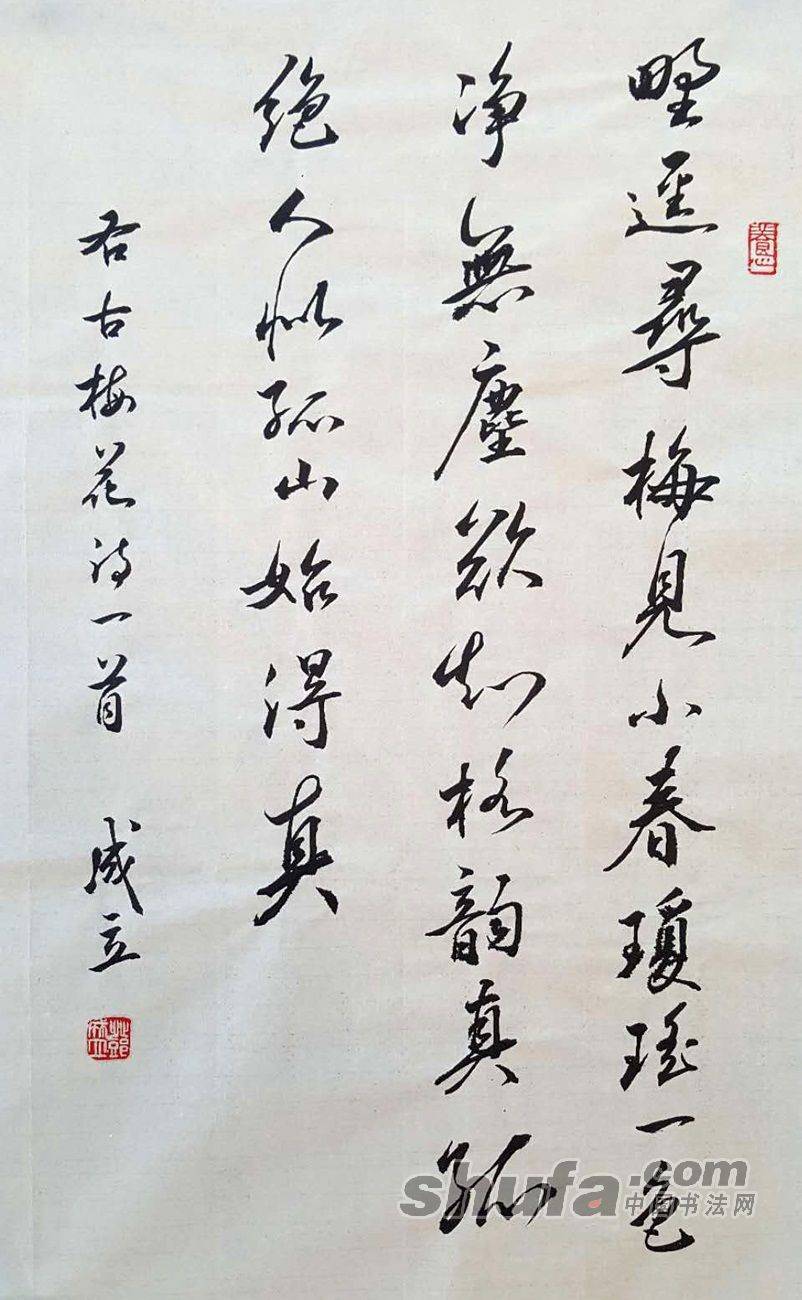 野逕尋梅見小春瓊瑤一色
净無塵欲知格韵真孤
絶人似孤山始得真
右古梅花诗一首 成立
shufa.com
中国书法网